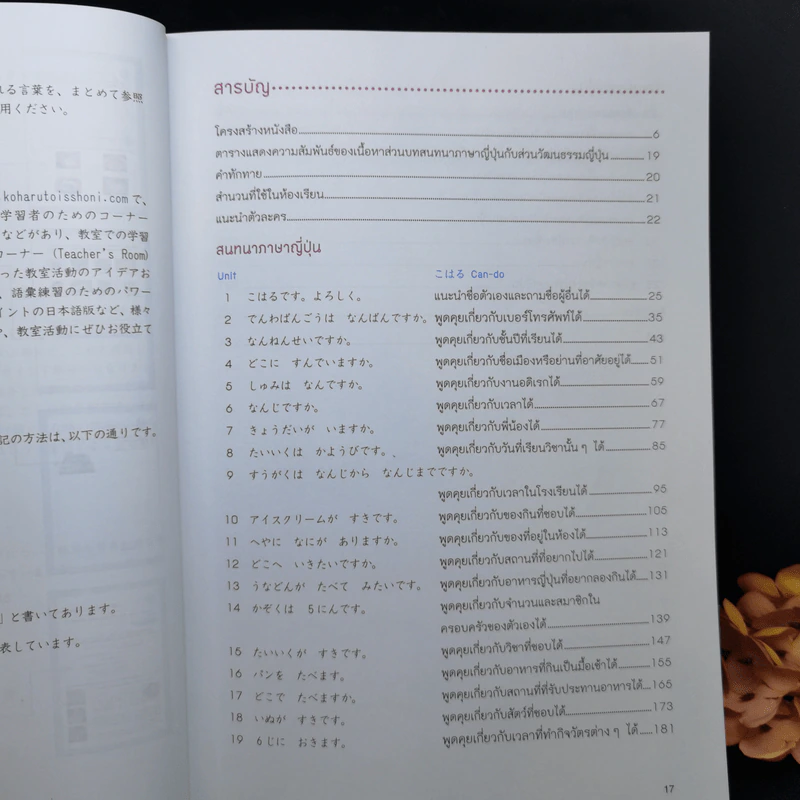 れる言葉を、まとめて参照
用ください。
koharutoisshoni.com で、
学習者のためのコーナー
などがあり、教室での学習
コーナー (Teacher's Room)
った教室活動のアイデアお
、語彙練習のためのパワー
イントの日本語版など、様々
、教室活動にぜひお役立て
記の方法は、以下の通りです。
」と書いてあります。
表しています。
สารบัญ
โครงสร้างหนังสือ 6
ตารางแสดงความสัมพันธ์ของเนื้อหาส่วนบทสนทนาภาษาญี่ปุ่นกับส่วนวัฒนธรรมญี่ปุ่น 19
คำทักทาย 20
สำนวนที่ใช้ในห้องเรียน 21
แนะนำตัวละคร 22
สนทนาภาษาญี่ปุ่น
Unit こはる Can-do
1 こはるです。よろしく。 แนะนำชื่อตัวเองและถามชื่อผู้อื่นได้ 25
2 でんわばんごうは なんばんですか。 พูดคุยเกี่ยวกับเบอร์โทรศัพท์ได้ 35
3 なんねんせいですか。 พูดคุยเกี่ยวกับชั้นปีที่เรียนได้ 43
4 どこに すんでいますか。 พูดคุยเกี่ยวกับชื่อเมืองหรือย่านที่อาศัยอยู่ได้ 51
5 しゅみは なんですか。 พูดคุยเกี่ยวกับงานอดิเรกได้ 59
6 なんじですか。 พูดคุยเกี่ยวกับเวลาได้ 67
7 きょうだいが いますか。 พูดคุยเกี่ยวกับพี่น้องได้ 77
8 たいいくは かようびです。 พูดคุยเกี่ยวกับวันที่เรียนวิชานั้น ๆ ได้ 85
9 すうがくは なんじから なんじまでですか。
พูดคุยเกี่ยวกับเวลาในโรงเรียนได้ 95
10 アイスクリームが すきです。 พูดคุยเกี่ยวกับของกินที่ชอบได้ 105
11 へやに なにが ありますか。 พูดคุยเกี่ยวกับของที่อยู่ในห้องได้ 113
12 どこへ いきたいですか。 พูดคุยเกี่ยวกับสถานที่ที่อยากไปได้ 121
13 うなどんが たべて みたいです。 พูดคุยเกี่ยวกับอาหารญี่ปุ่นที่อยากลองกินได้ 131
14 かぞくは 5にんです。 พูดคุยเกี่ยวกับจำนวนและสมาชิกใน
ครอบครัวของตัวเองได้ 139
15 たいいくが すきです。 พูดคุยเกี่ยวกับวิชาที่ชอบได้ 147
16 パンを たべます。 พูดคุยเกี่ยวกับอาหารที่กินเป็นมื้อเช้าได้ 155
17 どこで たべますか。 พูดคุยเกี่ยวกับสถานที่ที่รับประทานอาหารได้ 165
18 いぬが すきです。 พูดคุยเกี่ยวกับสัตว์ที่ชอบได้ 173
19 6じに おきます。 พูดคุยเกี่ยวกับเวลาที่ทำกิจวัตรต่าง ๆ ได้ 181
17